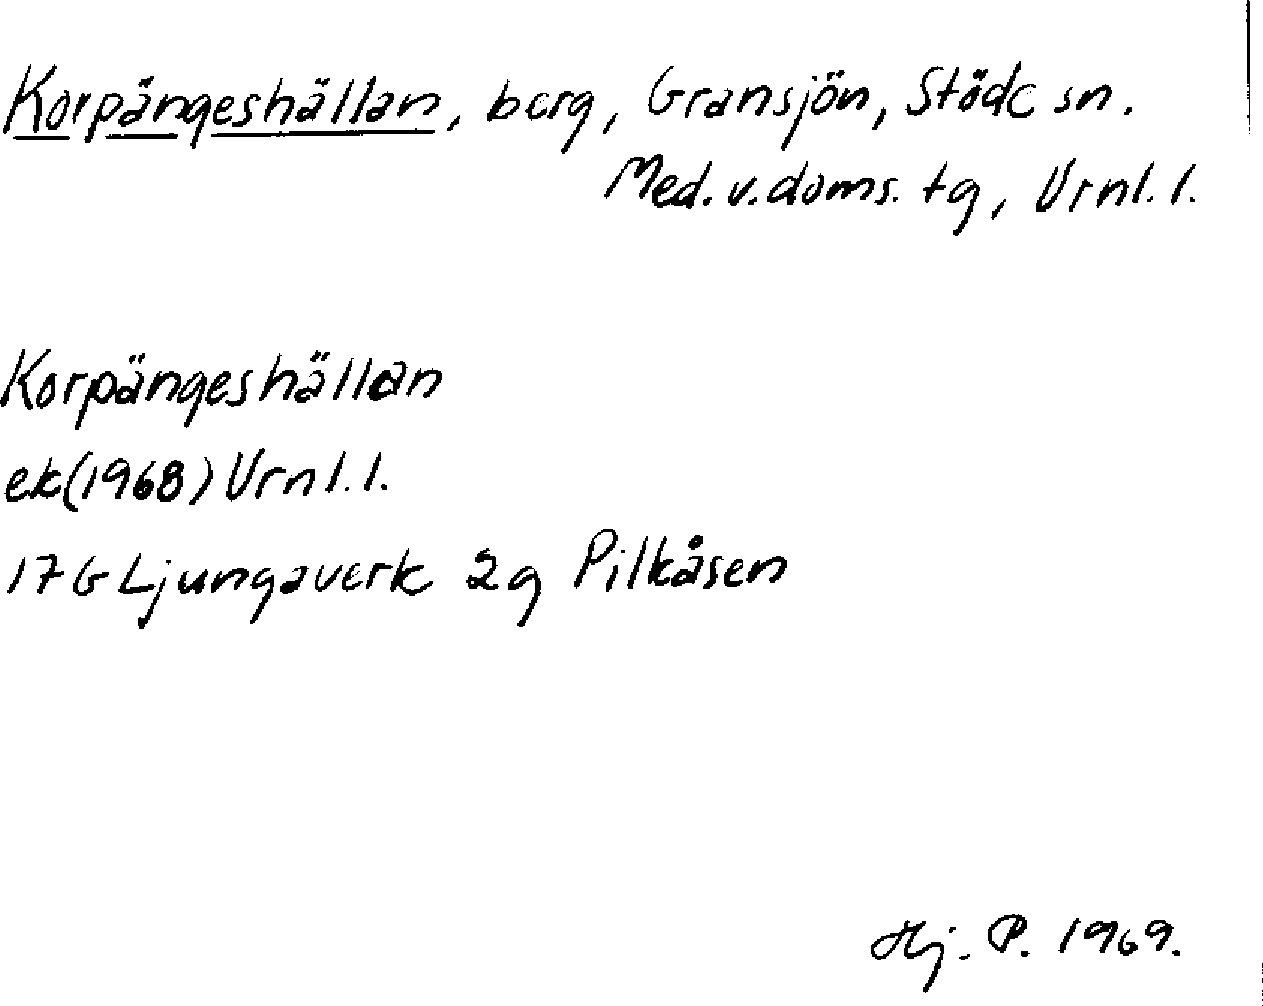 Korpängeshällan, berg, Gransjön, Stöde sn.
Med. v. doms. tg, Vrnl. l.
Korpängeshällan
ek(1968) Vrnl. l.
17G Ljungaverk 2g Pilkåsen
Hj. P. 1969.